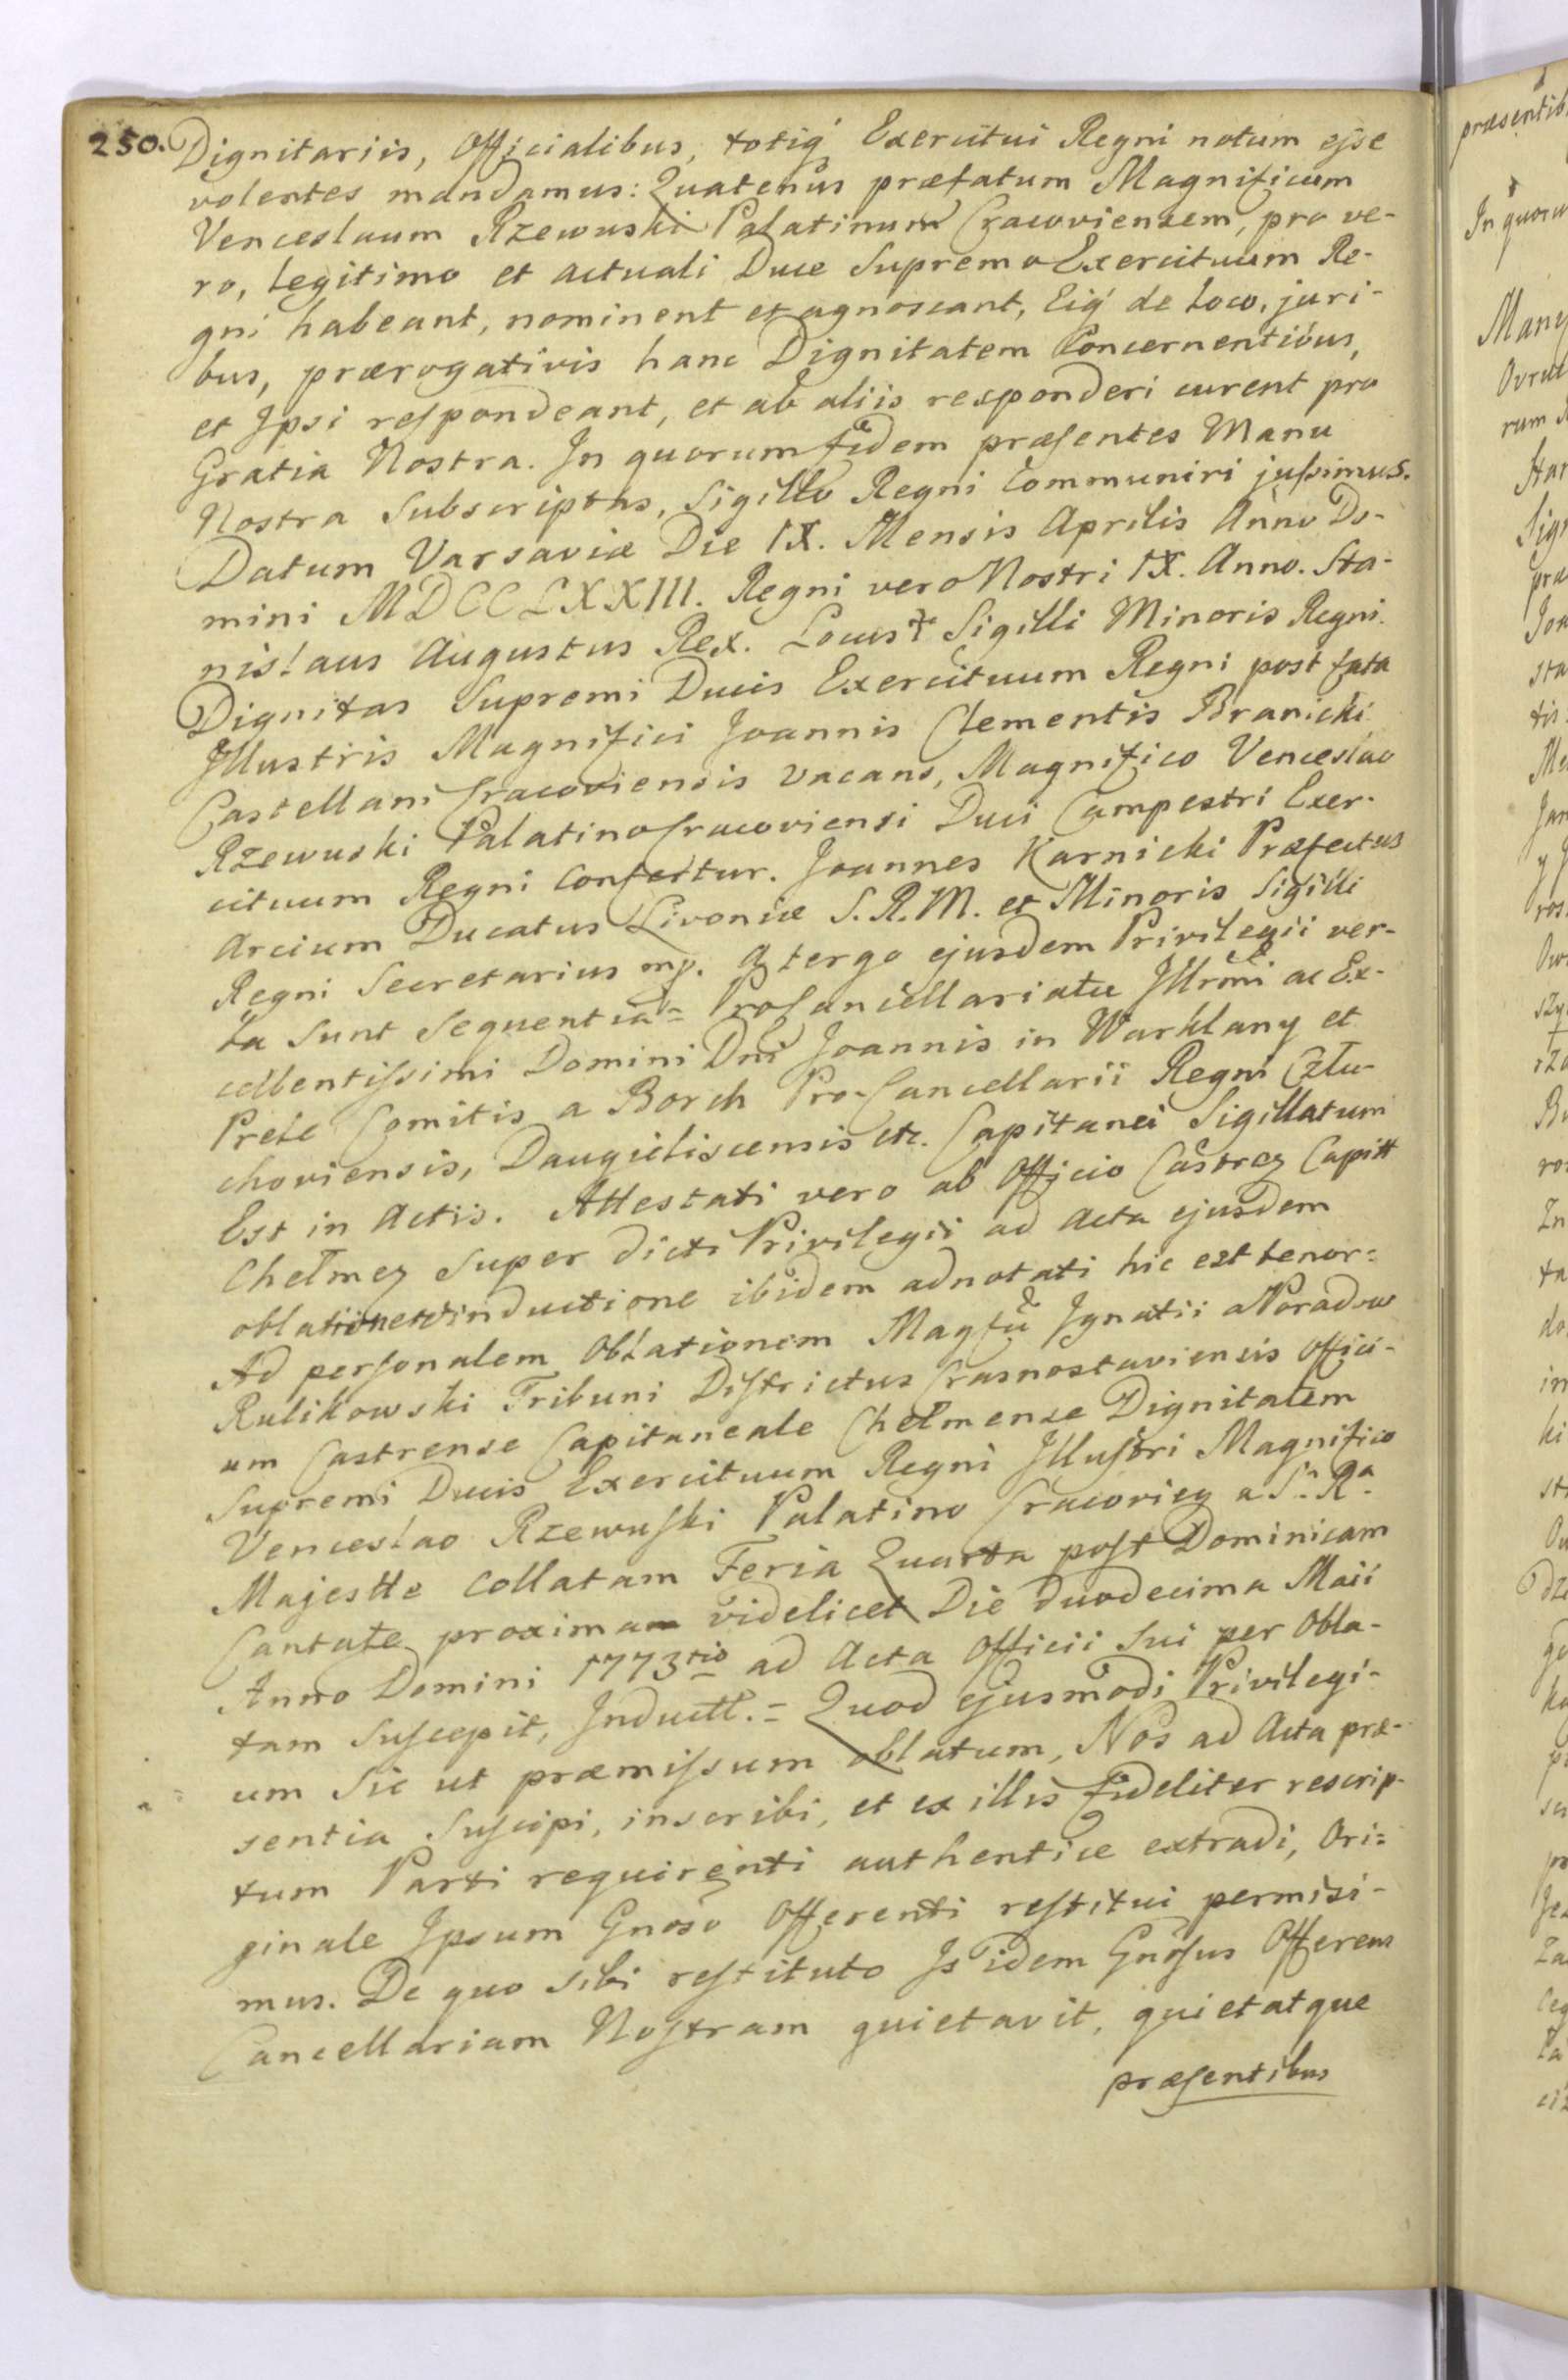 250. Dignitariis, Officialibus, totiq́ Exercitui Regni notum eſse
volentes mandamus: Quatenus præfatum Magnificum
Venceslaum Rzewuski Palatinum Cracoviensem, pro ve-
ro, legitimo et actuali Duce Supremo Exercituum Re-
gni habeant, nominent et agnoscant, Eiq́ de loco, juri-
bus, prærogativis hanc Dignitatem Concernentibus,
et Ipsi reſpondeant, et ab aliis responderi curent pro
Gratia Nostra. In quorum fidem præſentes Manu
Nostra Subscriptas, Sigillo Regni Communiri juſsimus.
Datum Varsaviæ Die IX. Mensis Aprilis Anno Do-
mini MDCCLXXIII. Regni vero Nostri IX. Anno. Sta-
nislaus Augustus Rex. Locus † Sigilli Minoris Regni.
Dignitas Supremi Ducis Exercituum Regni post fata
Illustris Magnifici Joannis Clementis Branicki
Castellani Cracoviensis vacans, Magnifico Venceslao
Rzewuski Palatino Cracoviensi Duci Campestri Exer-
cituum Regni Confertur. Joannes Karnicki Præfectus
Arcium Ducatus Livoniæ S. R. M. et Minoris Sigilli
Regni Secretarius mp. A tergo ejusdem Privilegii ver-
ba sunt Sequentia = ProCancellariatu Illrmi ac Ex-
cellentiſsimi Domini Dni Joannis in Warklany et
Prele Comitis a Borch Pro-Cancellarii Regni Człu-
choviensis, Daugieliscensis etc. Capitanei Sigillatum
Est in Actis. Attestati vero ab Officio Castrez Capitt
Chełmez super dicti Privilegii ad Acta ejusdem
oblatione et inductione ibidem adnotati hic est tenor =
Ad perſonalem Oblationem Magfu Ignatii a Poradow
Rulikowski Tribuni Diſtrictus Crasnostaviensis Offici-
um Castrense Capitaneale Chełmense Dignitatem
Supremi Ducis Exercituum Regni Illuſtri Magnifico
Venceslao Rzewuſki Palatino Cracoviez a S. Rª
Majestte collatam Feria Quarta poſt Dominicam
Cantate proximam videlicet Die duodecima Maii
Anno Domini 1773tio ad Acta Officii Sui per Obla-
tam Suſcepit, Inductt. = Quod ejusmodi Privilegi-
um Sic ut præmiſsum oblatum, Nos ad Acta præ-
sentia Suſcipi, inscribi, et ex illis fideliter rescrip-
tum Parti requirenti authentice extradi, Ori=
ginale Ipsum Gnoso Offerenti reſtitui permisi-
mus. De quo sibi reſtituto Is idem Gnoſus Offerens
Cancellariam Noſtram quietavit, quietatque
præſentibus